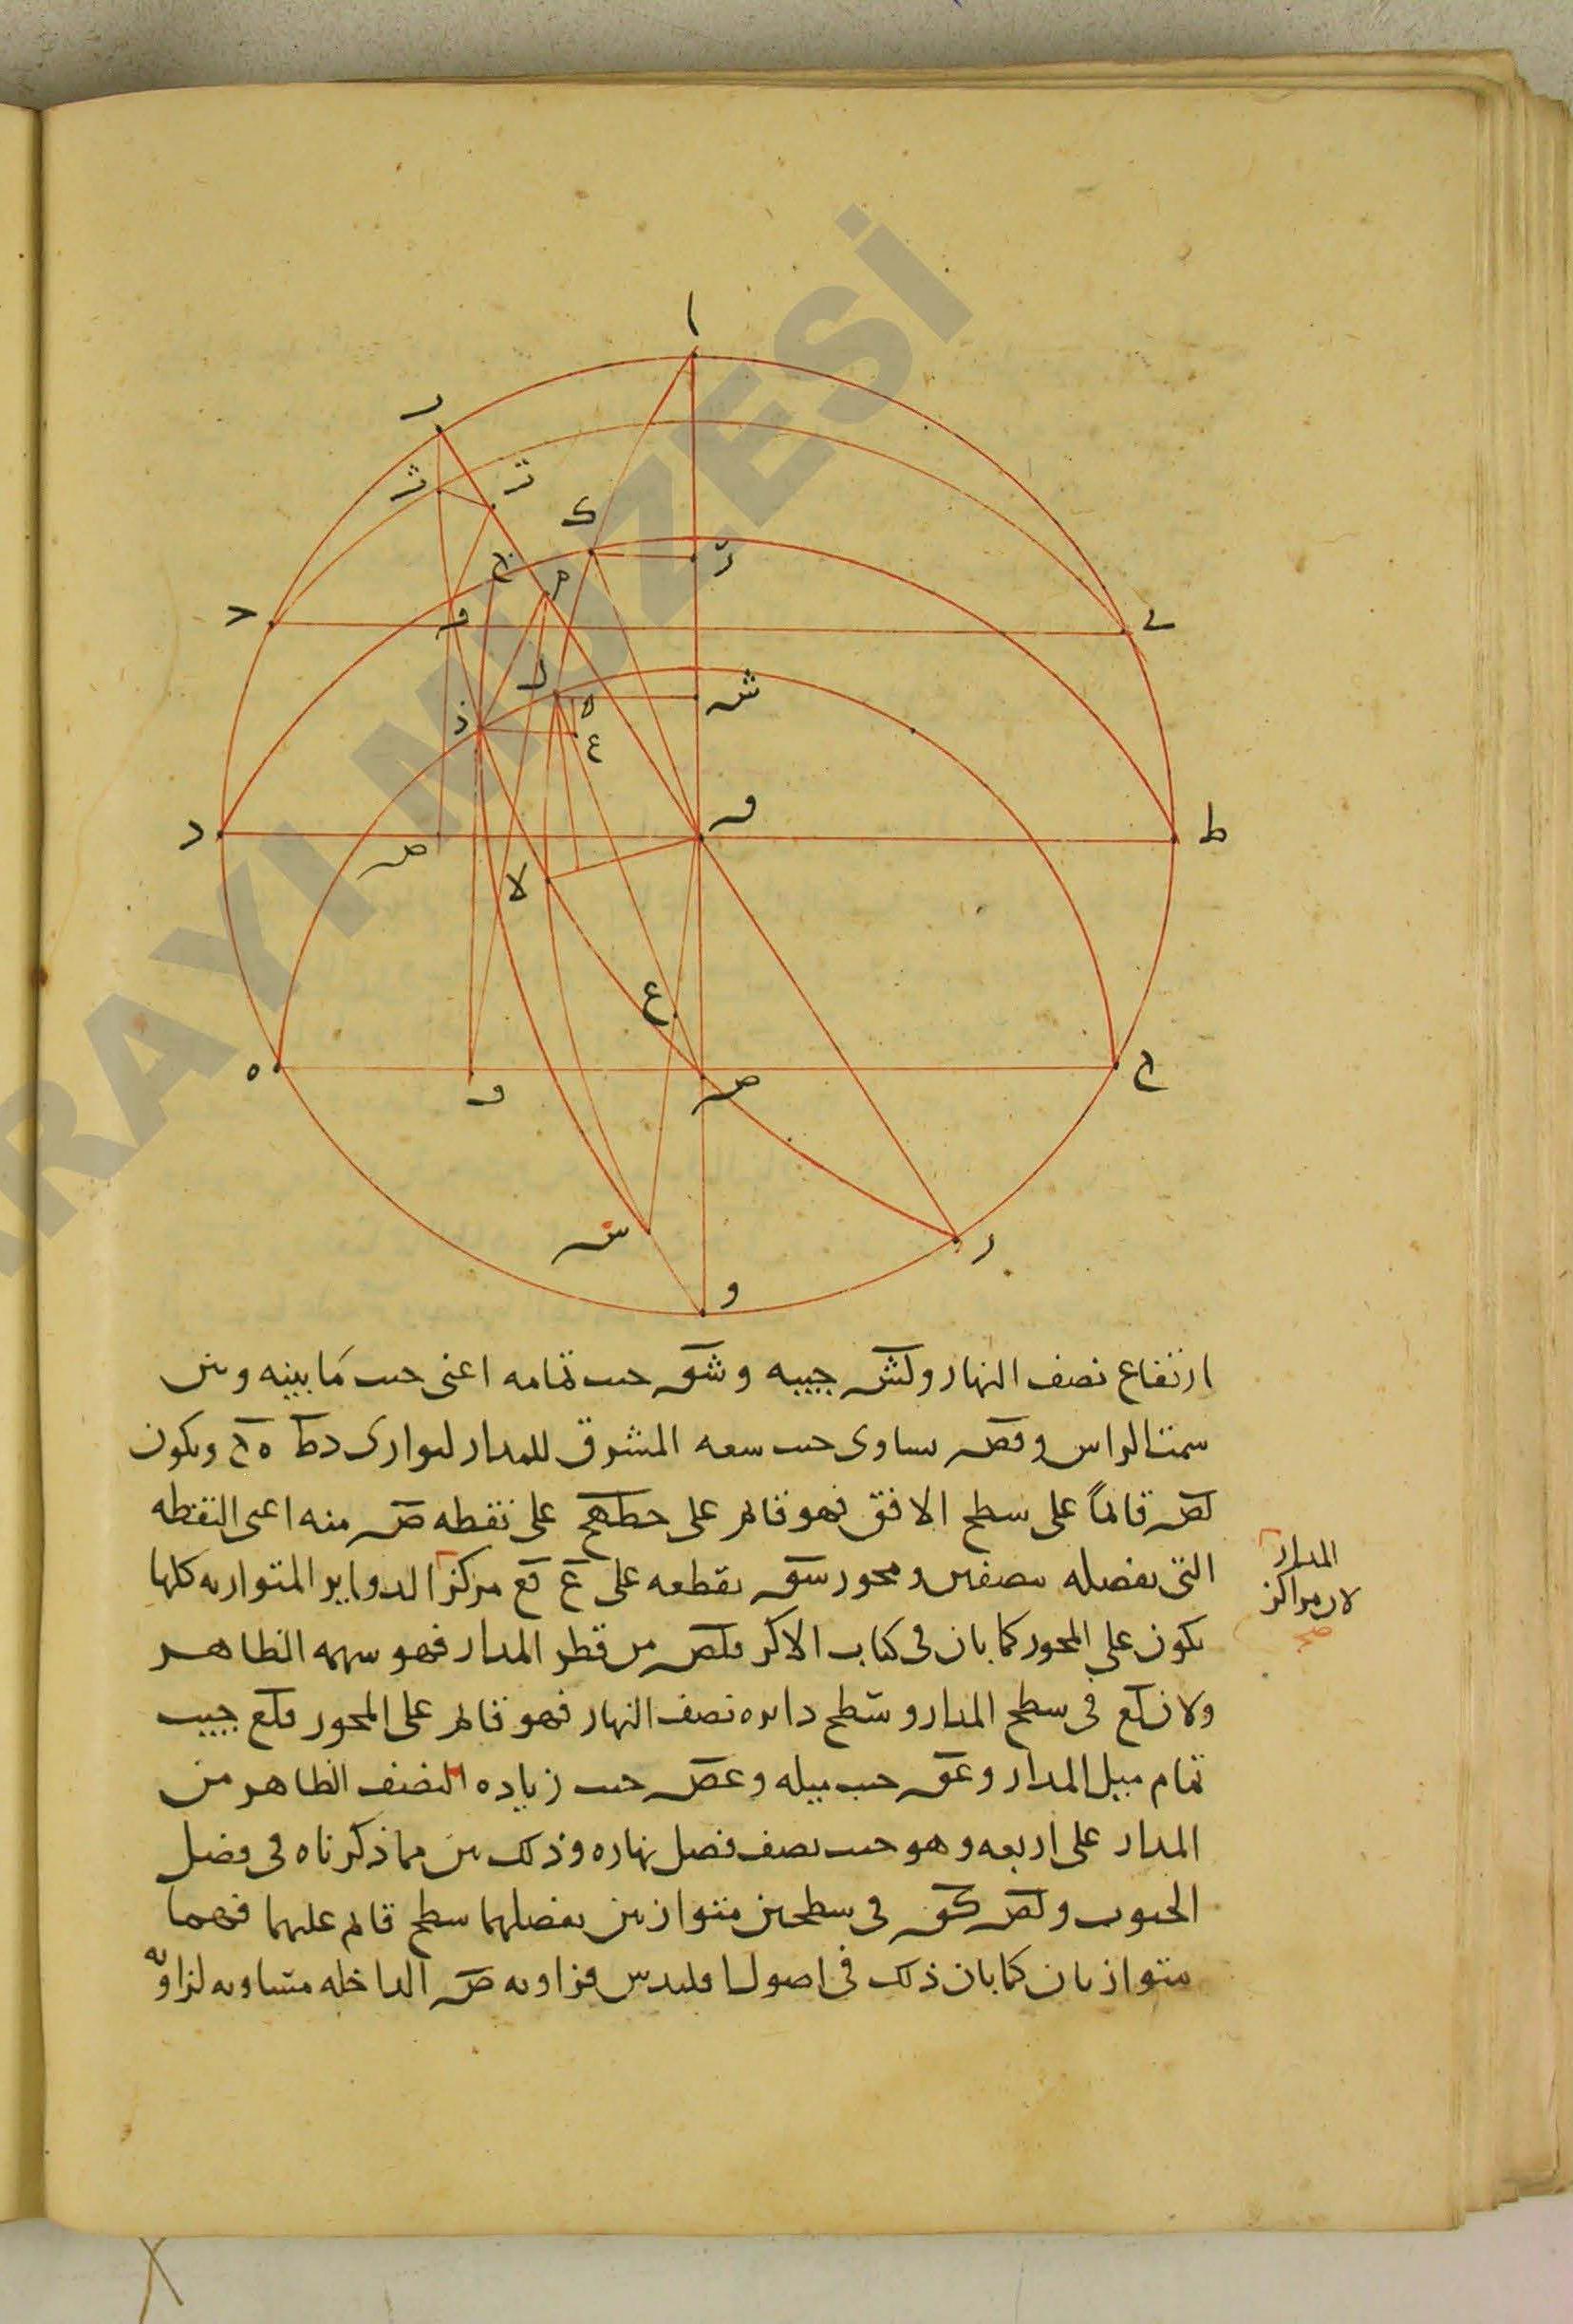 ا
ر
ث
ت
ک
خ
م
ر
ح
ف
ے
ل
ه
ش
ذ
ع
د
ص
ق
ط
لا
ع
ه
و
ص
ح
س
ر
و
ارتفاع نصف النهار ولش جيبه وشق حب تمامه اعنى حب ما بينه وبين
سمت الراس وقص يساوى حب سعه المشرق للمدار لتوازى دط هح ويكون
لص قائما على سطح الافق فهو قائم على خط هح على نقطه ص منه اعنى النقطه
التى تفصله بنصفين ومحور سق يقطعه على ع فع مركز الدواير المتوازيه كلها
المدار
لان مراكز
صح
يكون على المحور كما بان فى كتاب الاكر فلص من قطر المدار فهو سهمه الظاهر
ولان لع فى سطح المدار وسطح دايره نصف النهار فهو قائم على المحور فلع جيب
تمام ميل المدار وعق حب ميله وعص حب زياده النصف الظاهر من
المدار على اربعه وهو حب نصف فضل نهاره وذلك بين مما ذكرناه فى فصل
الجيوب ولص كق فى سطحين متوازيين يفصلهما سطح قائم عليهما فهما
متوازيان كما بان ذلك فى اصول اقليدس فزاويه ص الداخله متساويه لزاويه
SARAYI MÜZESİ